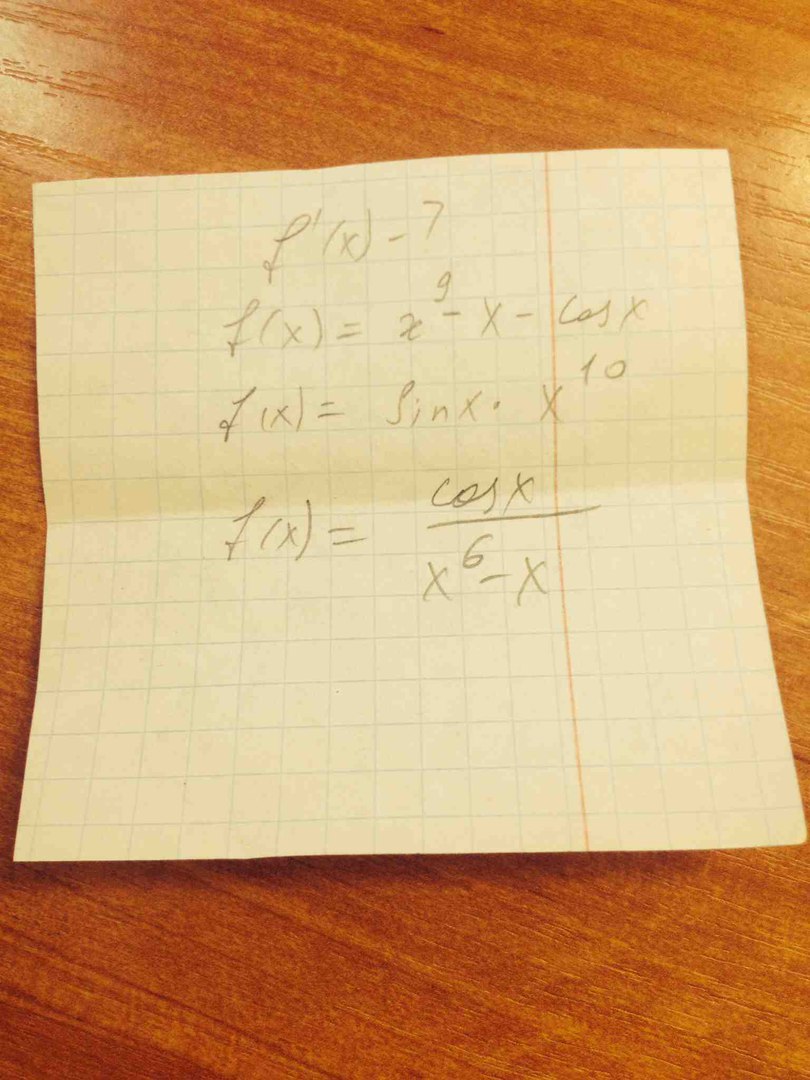 f'(x) - ?
f(x) = x⁹ - x - cos x
f(x) = sin x · x¹⁰
f(x) = cos x / x⁶ - x